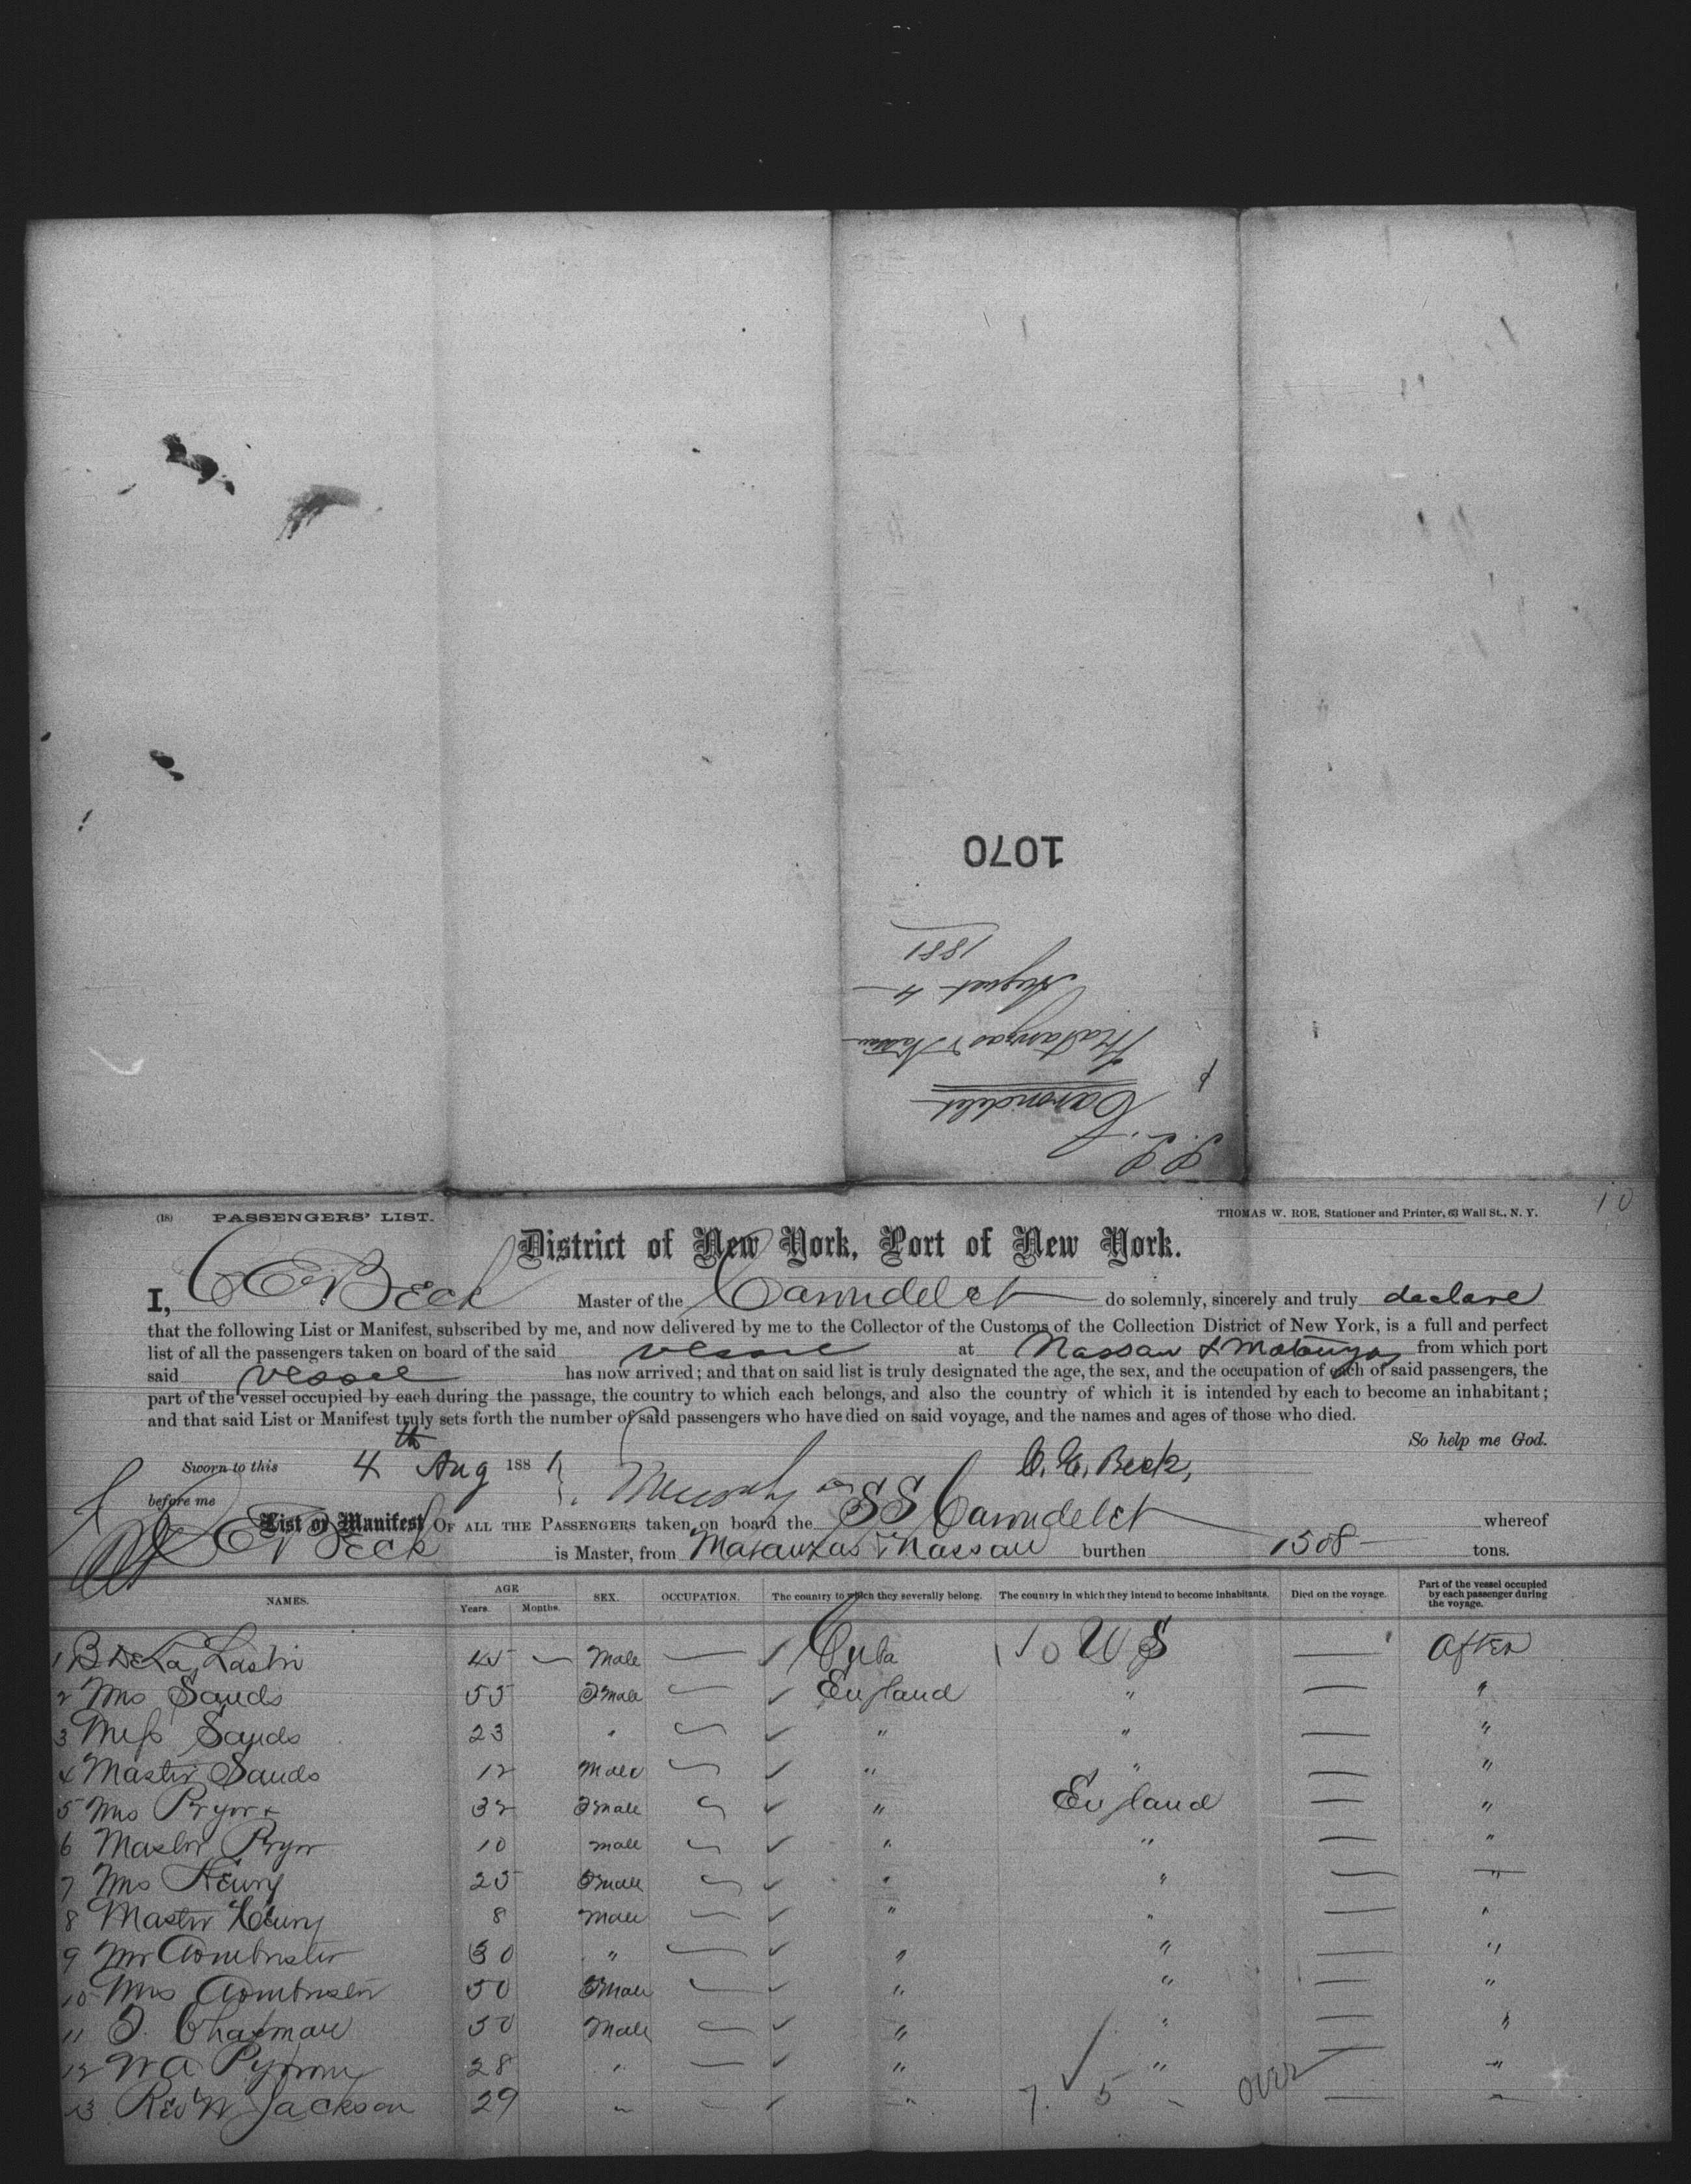 1070
1881
August 4
Matanzas & Nassau
Carondelet
10
(18) PASSENGERS' LIST. THOMAS W. ROE, Stationer and Printer, 63 Wall St., N. Y.
District of New York, Port of New York.
I, C E Beck Master of the Carondelet do solemnly, sincerely and truly declare
that the following List or Manifest, subscribed by me, and now delivered by me to the Collector of the Customs of the Collection District of New York, is a full and perfect
list of all the passengers taken on board of the said vessel at Nassau & Matanzas from which port
said vessel has now arrived; and that on said list is truly designated the age, the sex, and the occupation of each of said passengers, the
part of the vessel occupied by each during the passage, the country to which each belongs, and also the country of which it is intended by each to become an inhabitant;
and that said List or Manifest truly sets forth the number of said passengers who have died on said voyage, and the names and ages of those who died.
So help me God.
Sworn to this 4th Aug 1881 C. E. Beck,
before me
List or Manifest OF ALL THE PASSENGERS taken on board the SS Carondelet whereof
C E Beck is Master, from Matanzas & Nassau burthen 1508 tons.
NAMES. AGE Years. Months. SEX. OCCUPATION. The country to which they severally belong. The country in which they intend to become inhabitants. Died on the voyage. Part of the vessel occupied by each passenger during the voyage.
1 B De La Lastri 45 — Male — ✓ Cuba To U S — After
2 Mrs Sands 55 Fmale — ✓ England " — "
3 Miss Sands 23 " — ✓ " " — "
4 Master Sands 12 Male — ✓ " " — "
5 Mrs Pryor 32 Fmale — ✓ " England — "
6 Master Pryor 10 male — ✓ " " — "
7 Mrs Henry 25 Fmale — ✓ " " — "
8 Master Henry 8 Male — ✓ " " — "
9 Mr Armbrister 30 " — ✓ " " — "
10 Mrs Armbrister 50 Fmale — ✓ " " — "
11 J. Chapman 50 Male — ✓ " " — "
12 W A 28 " — ✓ " " — "
13 Rev W Jackson 29 " — ✓ " 7. 5 " over — "